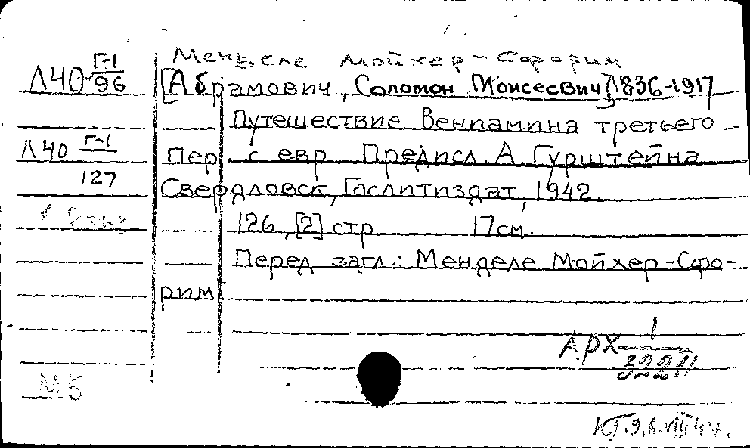 Менделе Мойхер-Сфорим
Л40 Г-1/96
[Абрамович, Соломон Моисеевич] 1836-1917
Путешествие Вениамина третьего
Л40 Г-1/127
Пер. с евр. Предисл. А. Гурштейна
Свердловск, Гослитиздат, 1942.
126, [2] стр. 17см.
Перед загл.: Менделе Мойхер-Сфо-
рим
АРХ 1
МБ